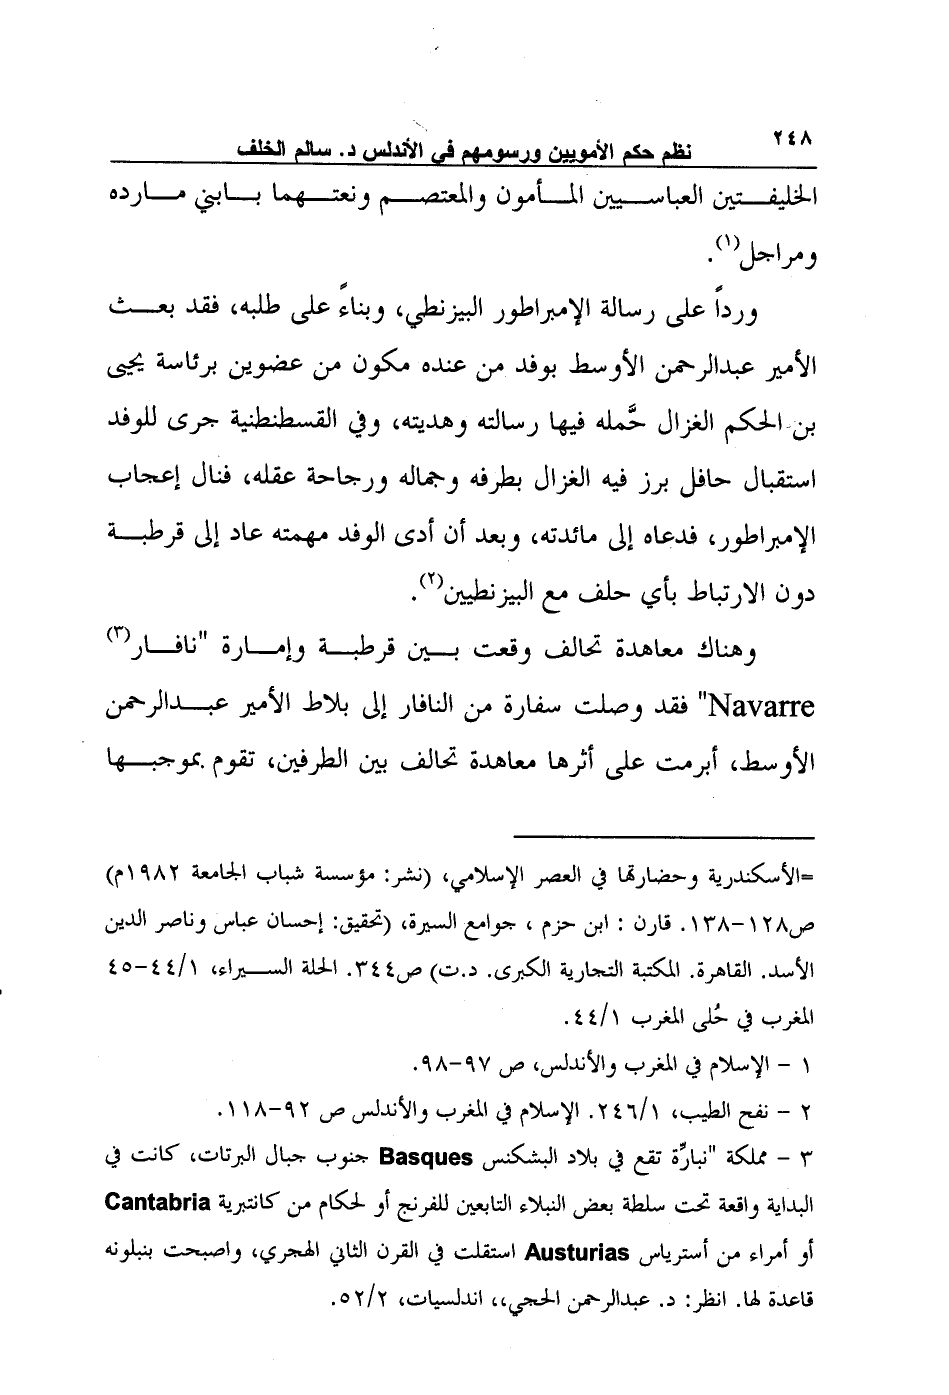 ٢٤٨
نظم حكم الأمويين ورسومهم في الأندلس د. سالم الخلف
الخليفتين العباسيين المأمون والمعتصم ونعتهما بابني مارده
ومراجل(١).
ورداً على رسالة الإمبراطور البيزنطي، وبناءً على طلبه، فقد بعث
الأمير عبدالرحمن الأوسط بوفد من عنده مكون من عضوين برئاسة يحيى
بن الحكم الغزال حَّمله فيها رسالته وهديته، وفي القسطنطنية جرى للوفد
استقبال حافل برز فيه الغزال بطرفه وجماله ورجاحة عقله، فنال إعجاب
الإمبراطور، فدعاه إلى مائدته، وبعد أن أدى الوفد مهمته عاد إلى قرطبة
دون الارتباط بأي حلف مع البيزنطيين(٢).
وهناك معاهدة تحالف وقعت بين قرطبة وإمارة "نافار(٣)
Navarre" فقد وصلت سفارة من النافار إلى بلاط الأمير عبدالرحمن
الأوسط، أبرمت على أثرها معاهدة تحالف بين الطرفين، تقوم بموجبها
=الأسكندرية وحضارتها في العصر الإسلامي، (نشر: مؤسسة شباب الجامعة ١٩٨٢م)
ص١٢٨-١٣٨. قارن : ابن حزم ، جوامع السيرة، (تحقيق: إحسان عباس وناصر الدين
الأسد. القاهرة. المكتبة التجارية الكبرى. د.ت) ص٣٤٤. الحلة السيراء، ٤٤/١-٤٥
المغرب في حُلى المغرب ٤٤/١.
١ - الإسلام في المغرب والأندلس، ص ٩٧-٩٨.
٢ - نفح الطيب، ٢٤٦/١. الإسلام في المغرب والأندلس ص ٩٢-١١٨.
٣ - مملكة "نبارَّة تقع في بلاد البشكنس Basques جنوب جبال البرتات، كانت في
البداية واقعة تحت سلطة بعض النبلاء التابعين للفرنج أو لحكام من كانتبرية Cantabria
أو أمراء من أسترياس Austurias استقلت في القرن الثاني الهجري، واصبحت بنبلونه
قاعدة لها. انظر: د. عبدالرحمن الحجي،، اندلسيات، ٥٢/٢.